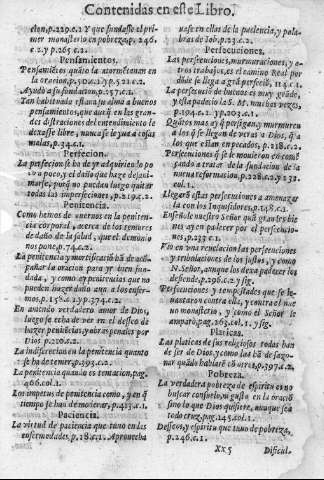 Contenidas en este Libro.
cion, p.229.c.1 Y que fundasse el pri-
mer monasterio en pobreza, p.246.
c.2 y p.265 c.2.
Pensamientos.
Pensamientos quiso la atormentassen en
la oracion, p.
Ayudò a su fundacion, p.257.c.1.
Tan habituada estaua su alma a buenos
pensamientos, que aun q̃ en las gran-
des distraciones del entendimiento le
dexasse libre, nunca se yua a cosas
malas, p.34.c.1.
Perfecion.
La perfecion se ha de yr adquiriendo po
co a poco, y el daño que haze desani-
marse, porq̃ no pueden luego quitar
todas las imperfecciones, p.
Penitencia.
Como hemos de auernos en la peniten-
cia corporal, acerca de los temores
de daño de la salud, que el demonio
nos pone, p.74.c.2.
La penitencia y mortificaciõ ha de acõ-
pañar la oracion para yr bien fun-
dada, y como ay penitencias que no
pueden hazer daño aun a los enfer-
mos, p.158.c.1 y p.374.c.2.
En auiendo verdadero amor de Dios,
luego se echa de ver en el desseo de
hazer penitẽcias y obras grandes por
Dios p.220.c.2.
La indiscrecion en la penitencia quanto
se ha de temer, p.393.c.1.
La penitencia quando es tentacion, pag.
466.col.1.
Los impetus de penitencia como, y en q̃
tiempo se han de moderar, p.413.c.1.
Paciencia.
La virtud de paciencia que tuuo en las
enfermedades, p.18.c.1. Aprouecha
uase en ellos de la paciencia, y pala-
bras de Iob, p.23.c.2.
Persecuciones.
Las persecuciones, murmuraciones, y o-
tros trabajos, es el camino Real por
dõde se llega a grã perfeciõ, 114.c.1.
La persecuciõ de buenos es muy grãde,
y esta padecio la S. M. muchas vezes,
p.194.c.2. y p.203.c.1.
Quãtos mas ay q̃ persigan, y murmuren
a los q̃ se llegan de veras a Dios, q̃ a
los que estan en pecados, p.218.c.2.
Persecuciones q̃ se le mouieron en com-
pando a tratar de la fundacion de la
nueua reformacion, p.228.c.2. y 231
col.1.
Llegarõ estas persecuciones a amenaza
lla con los Inquisidores, p.138.c.1.
Enseñole nuestro Señor quã gran bie
ay en padecer por el persecucio-
nes, p.233 c.1.
Vio en vna reuelacion las persecucione
y tribulaciones de los justos, y como
N. Señor, aunque los dexa padecer los
defiende, p.296.c.2. y sig.
Persecuciones y tempestades que se le-
uantaron contra ella, y contra el nue
uo monasterio, y como el Señor le
amparò, pag.263.col.1. y sig.
Platicas.
Las platicas de sus religiosos todas han
de ser de Dios, y como las hã de sago-
nar quãdo hablarẽ cõ otros, p.797.c.2.
Pobreza.
La verdadera pobreza de espiritu es no
buscar consuelo, ni gusto en la oraciõ
sino lo que Dios quisiere, aunque sea
todo cruz, pag.145.col.1.
Desseos, y espiritu que tuuo de pobreza,
p.246.c.1.
Xx5 Dificul.